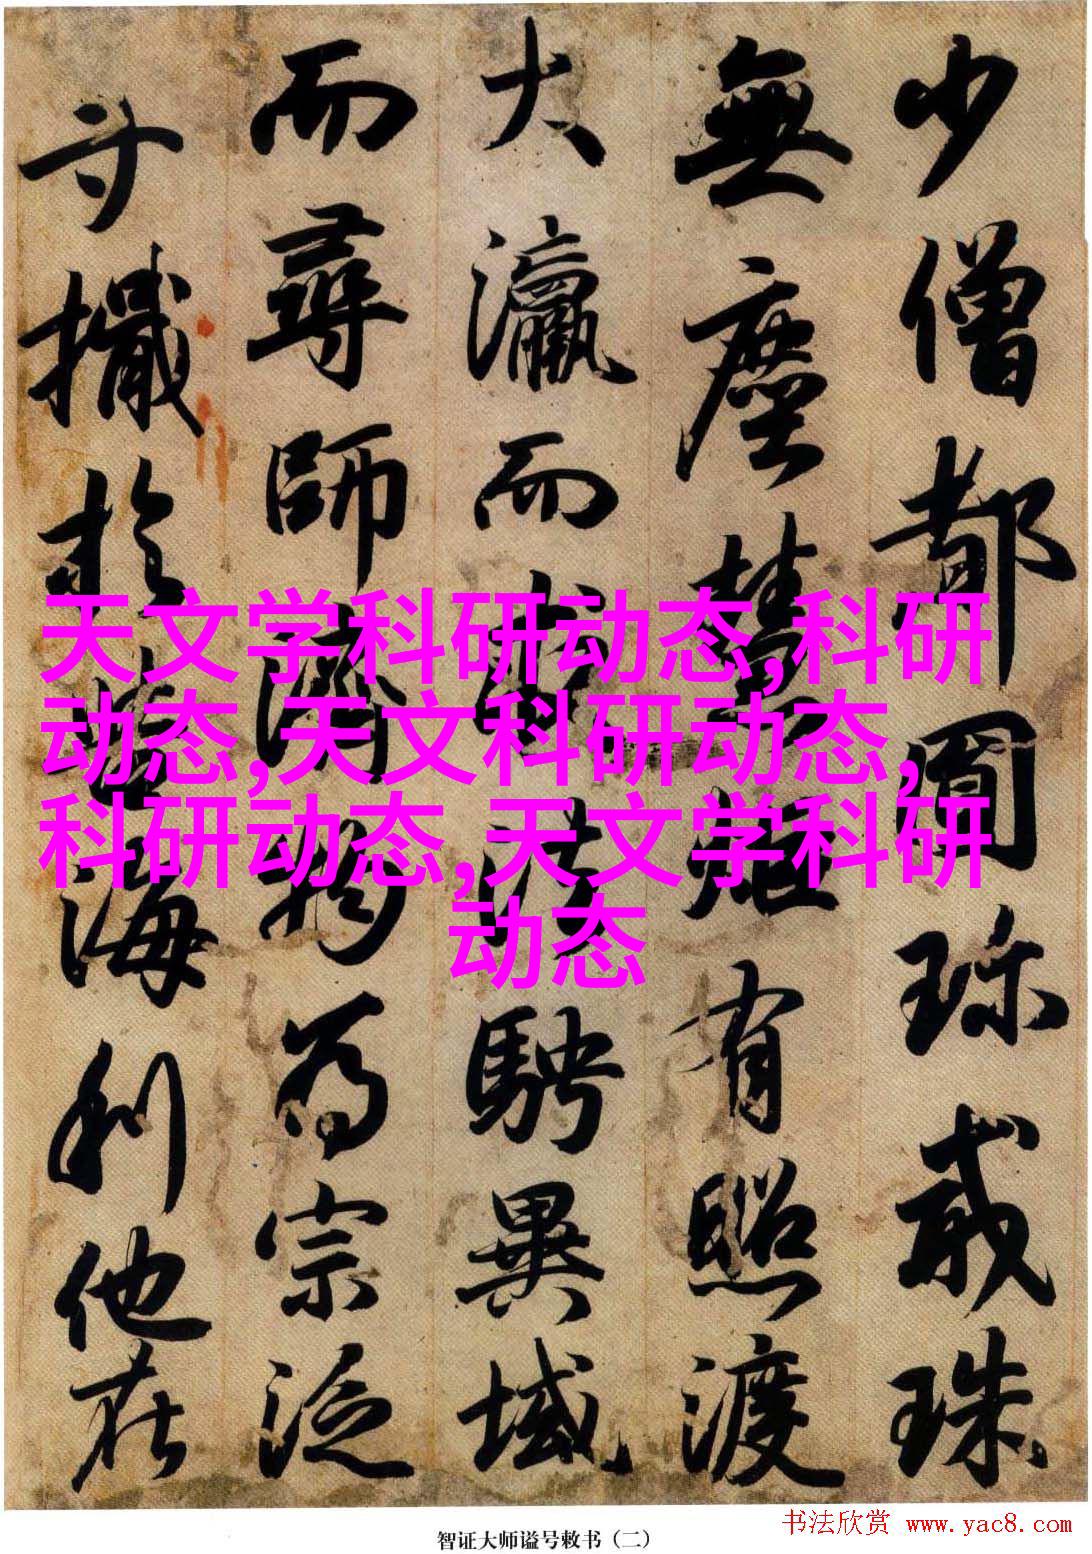 少僧都圓珎戒珠
無塵慧炬有照渡
大瀛而法騁異域
而尋師濟物為宗泛
寸於海利他在
天文学科研动态,科研
动态,天文科研动态,
科研动态,天文学科研
动态
智证大师谥号敕书（二）
书法欣赏 www.yac8.com